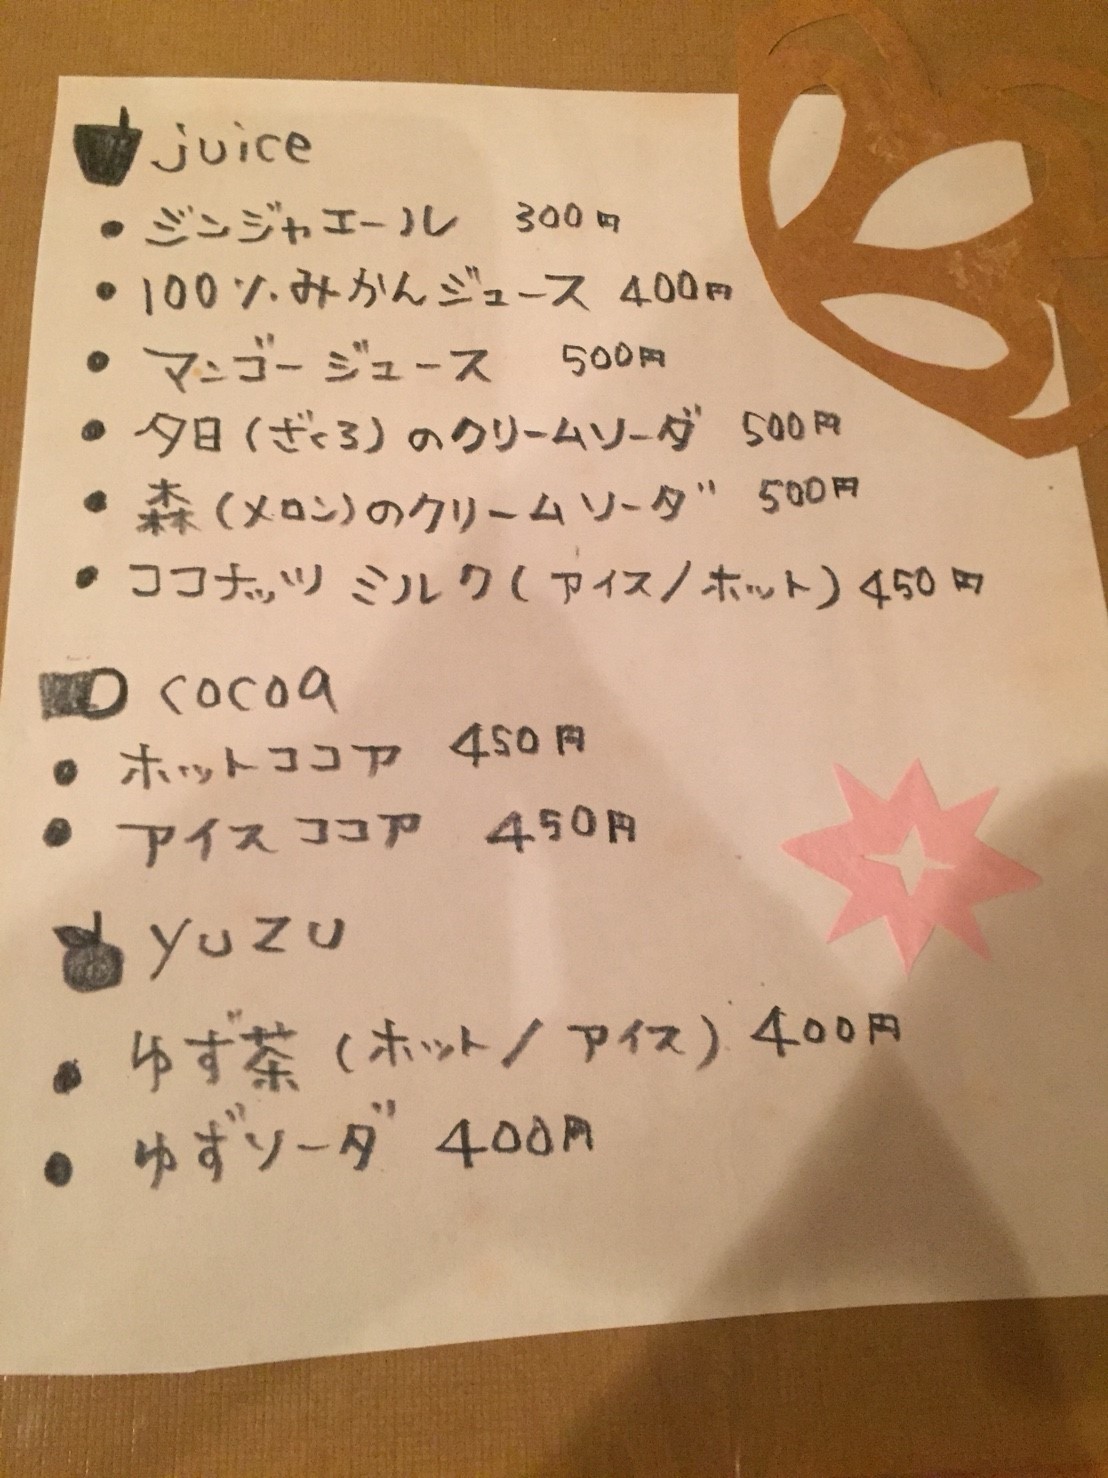 juice
・ジンジャエール 300円
・100%みかんジュース 400円
・マンゴージュース 500円
・夕日(ざくろ)のクリームソーダ 500円
・森(メロン)のクリームソーダ 500円
・ココナッツミルク(アイス/ホット) 450円
cocoa
・ホットココア 450円
・アイスココア 450円
yuzu
・ゆず茶(ホット/アイス) 400円
・ゆずソーダ 400円